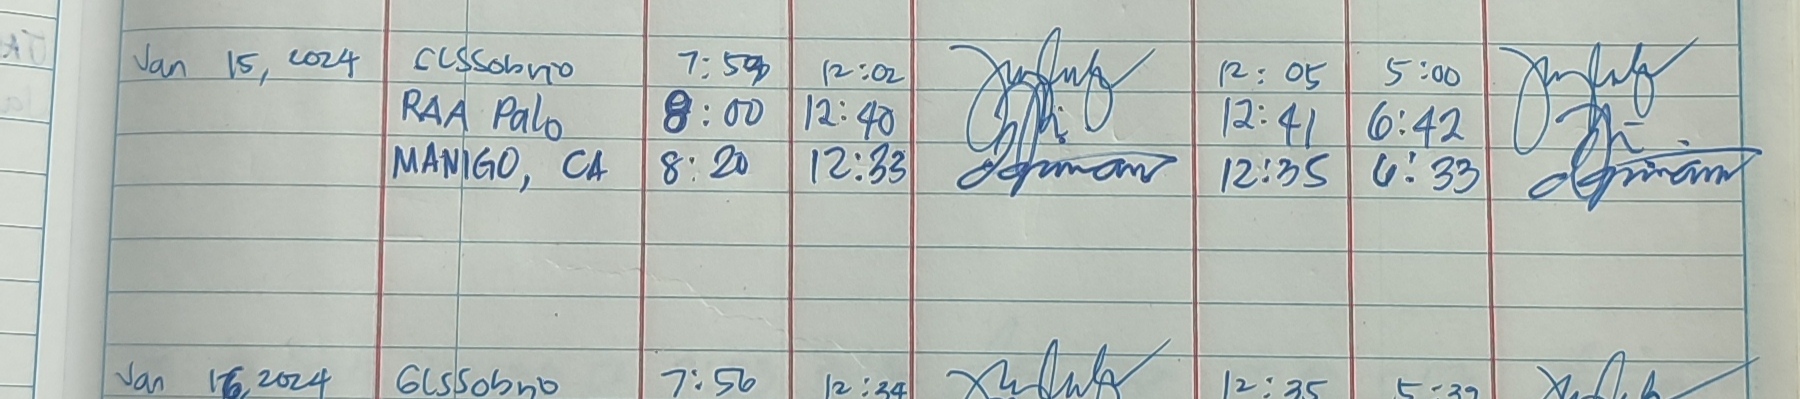 Jan 15, 2024 GLSSobrio 7:59 12:02 12:05 5:00
RAA Palo 8:00 12:40 12:41 6:42
MANIGO, CA 8:20 12:33 12:35 6:33
Jan 16, 2024 GLSSobrio 7:56 12:34 12:35 5:39